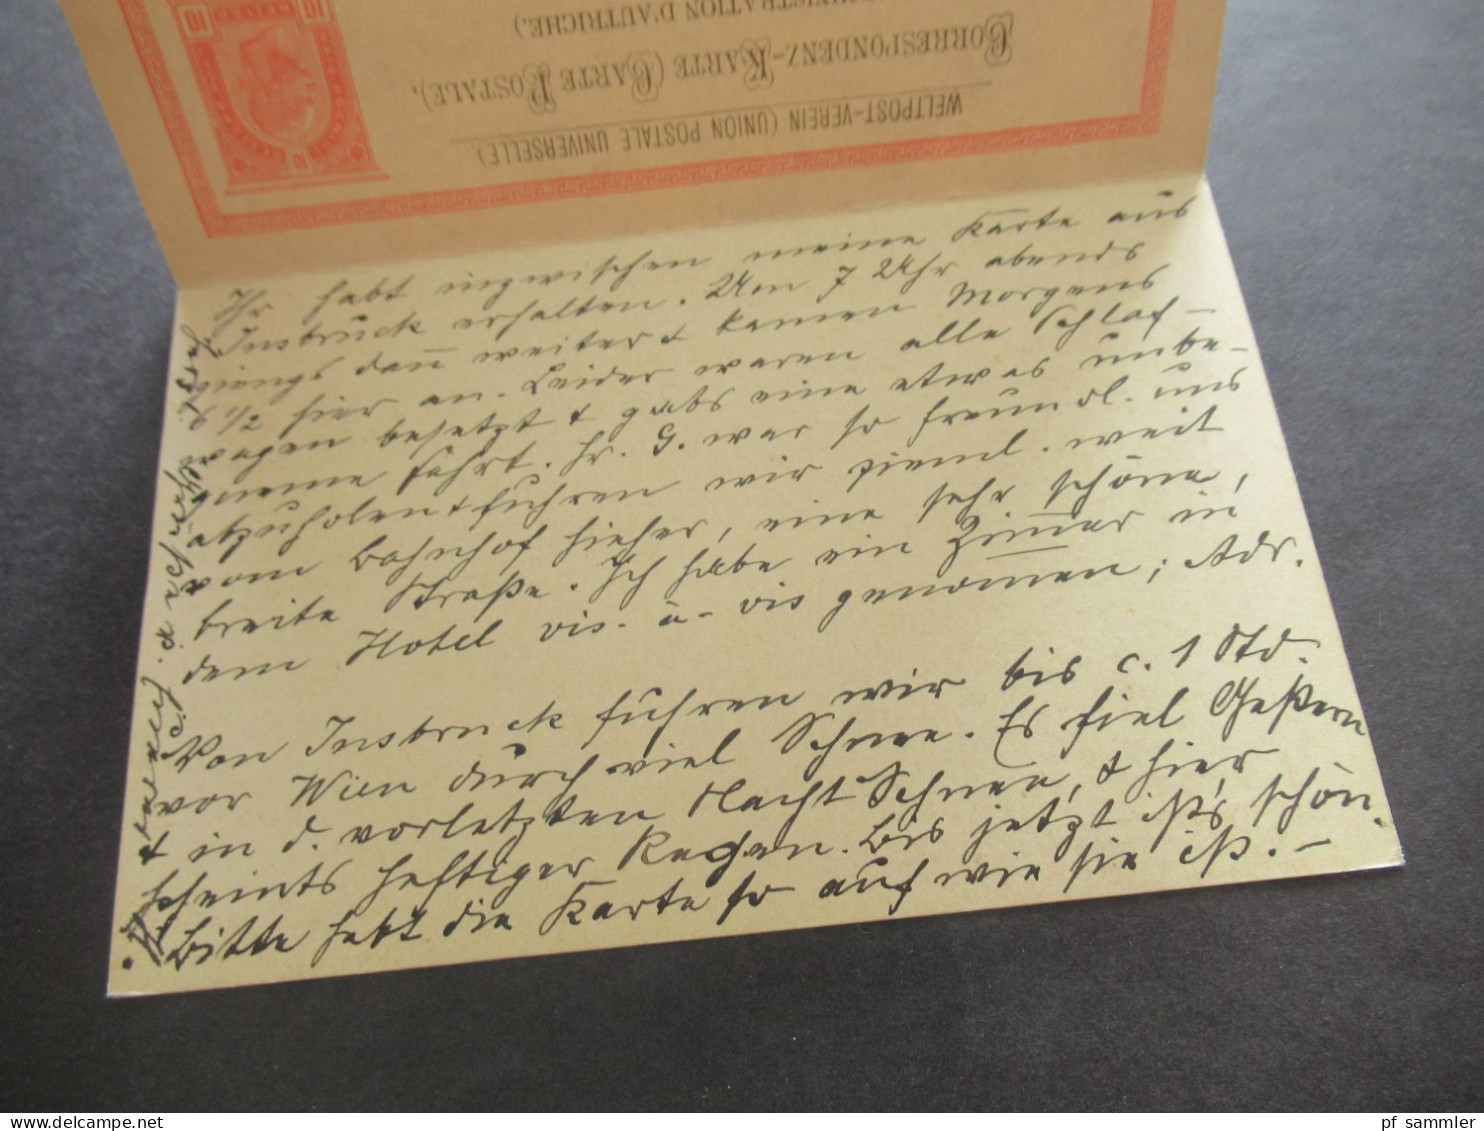 WELTPOST-VEREIN (UNION POSTALE UNIVERSELLE).
CORRESPONDENZ-KARTE (CARTE POSTALE),
MINISTRATION D'AUTRICHE.)
10 10
10
Ihr habt inzwischen meine Karte aus
Insbruck erhalten. Um 7 Uhr abends
giengs dan̅ weiter & kamen Morgens
6 1/2 hier an. Leider waren alle Schlaf-
wagen besetzt & gabs eine etwas unbe-
queme Fahrt. Hr. G. war so freundl. uns
abzuholen & fuhren wir zieml. weit
vom Bahnhof hieher, eine sehr schöne,
breite Straße. Ich habe ein Zim̅er in
dem Hotel vis-à-vis genom̅en; Adr.
Von Insbruck fuhren wir bis c. 1 Std.
vor Wien durch viel Schnee. Es fiel Gestern
& in d. vorletzten Nacht Schnee, & hier
scheints heftiger Regen. Bis jetzt ists schön.
Bitte hebt die Karte so auf wie sie ist. –
pf sammler